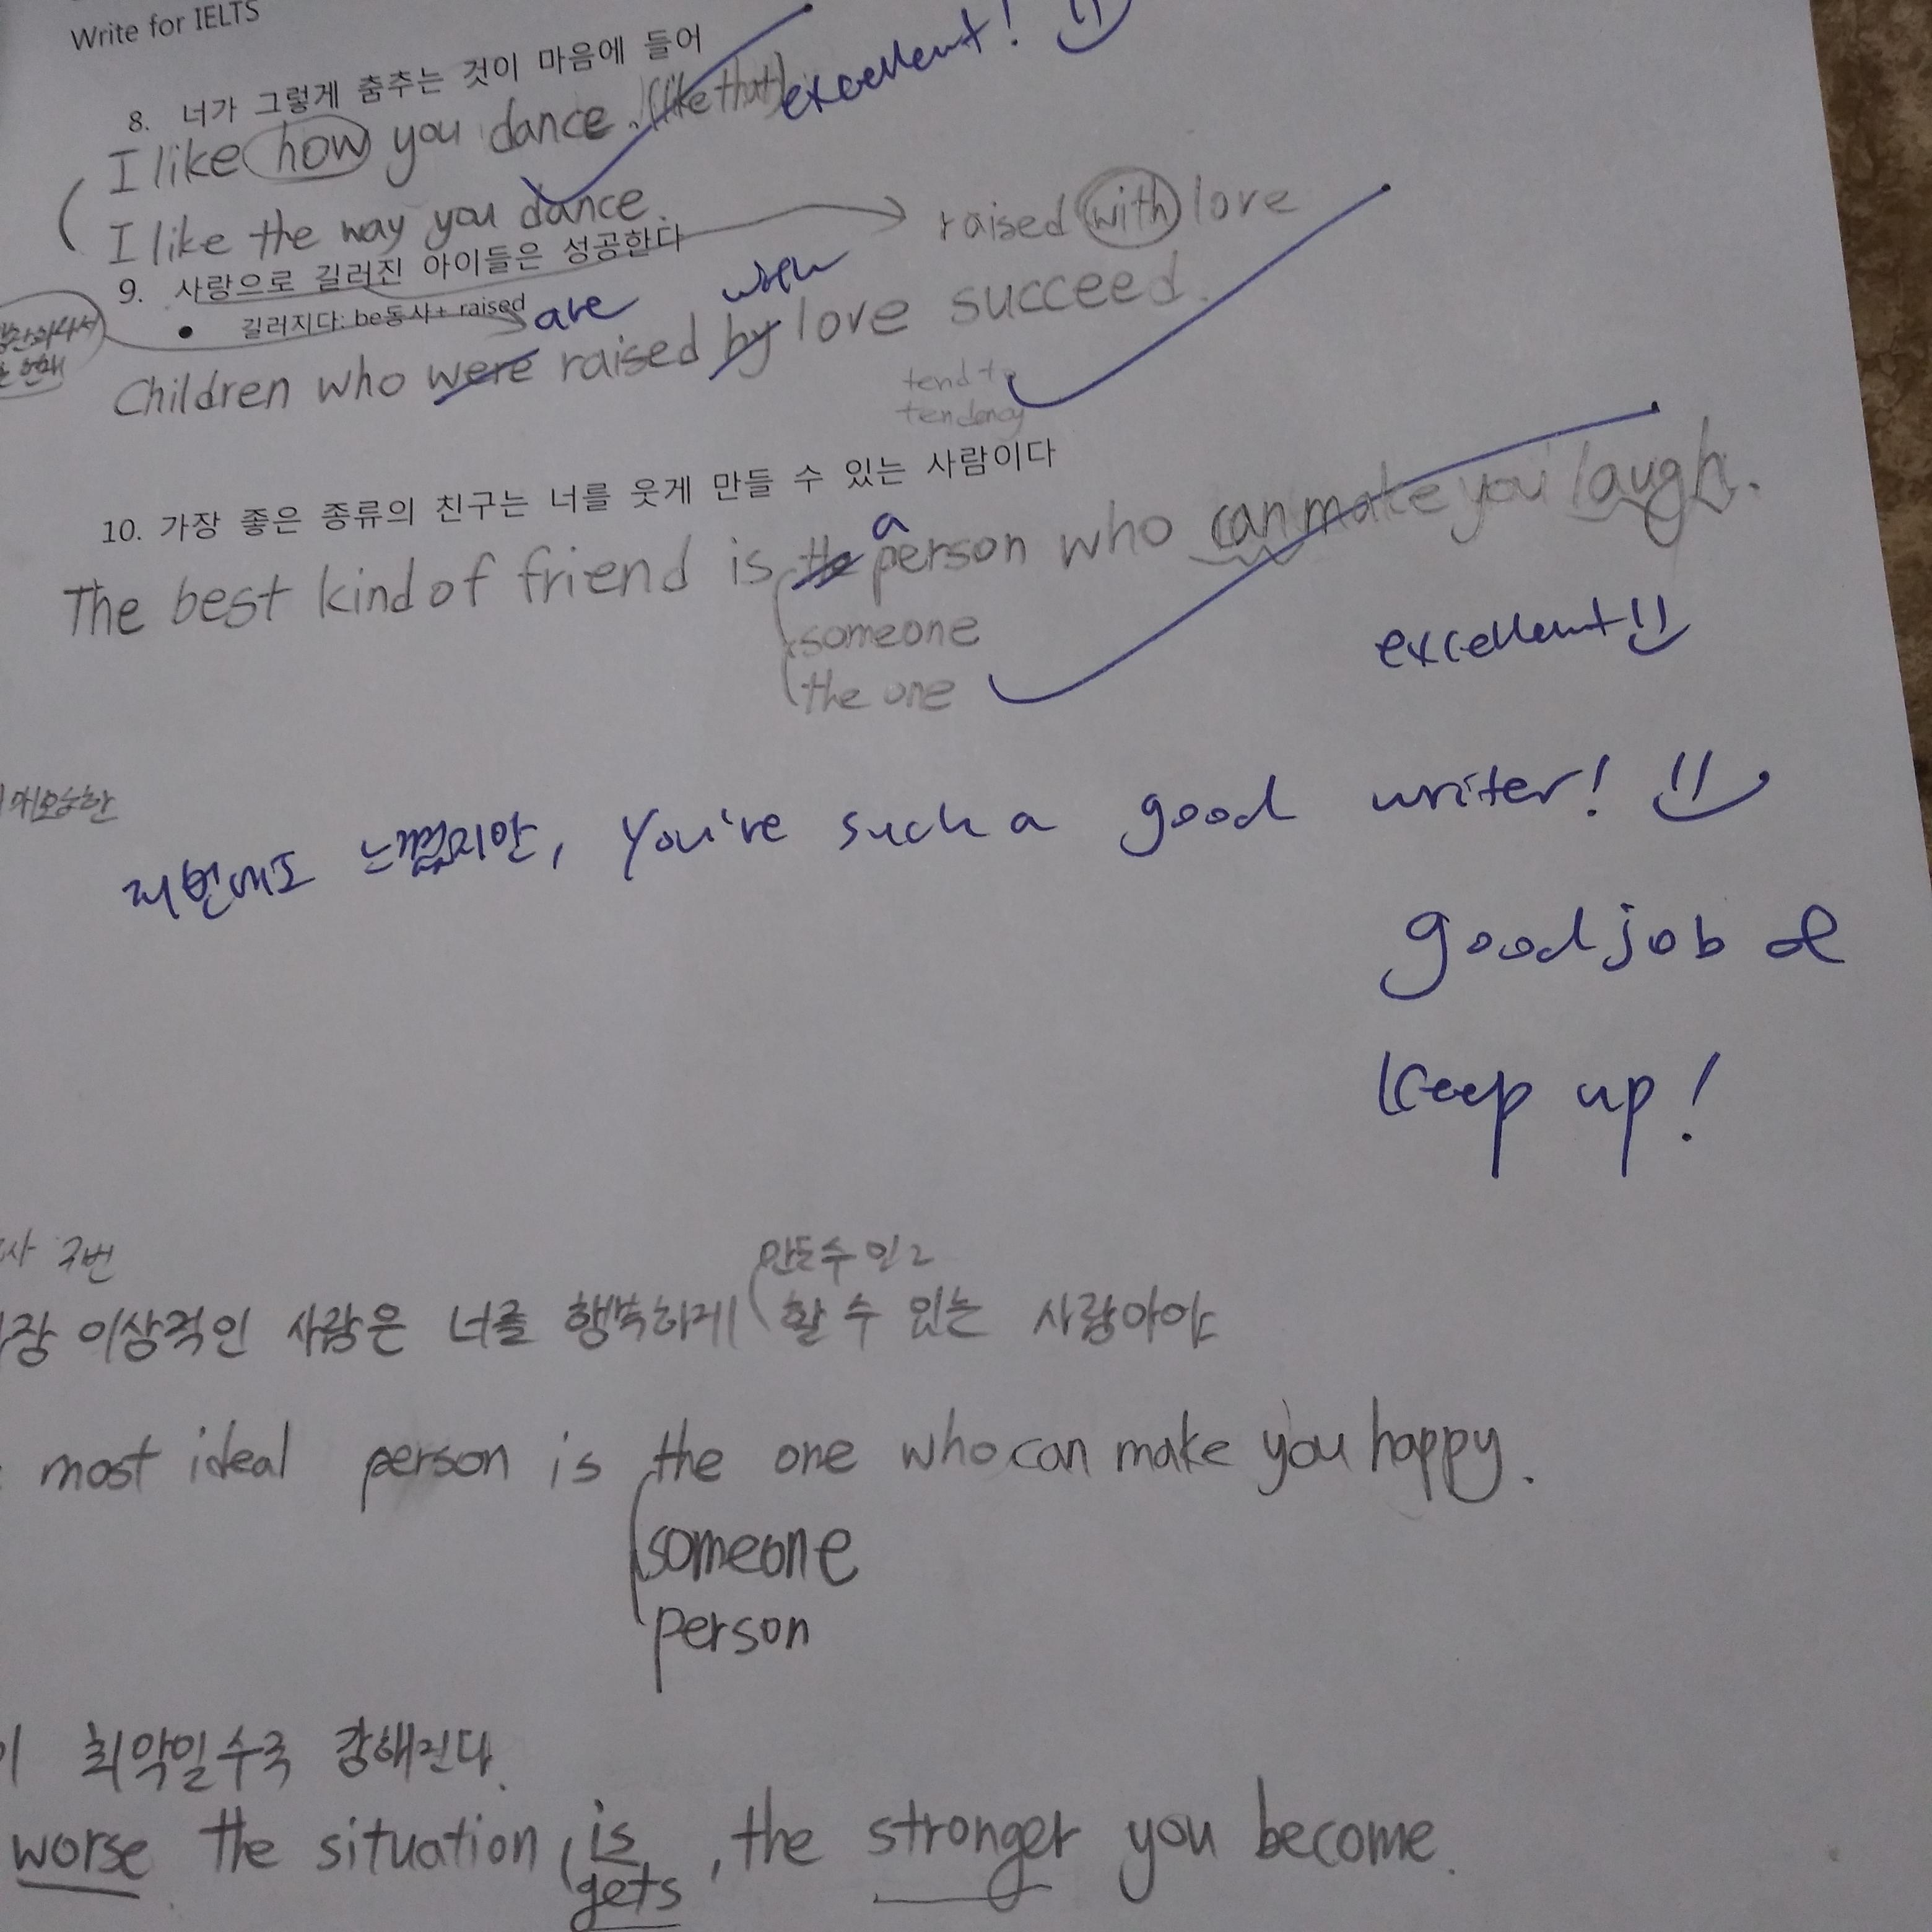 Write for IELTS
8. 너가 그렇게 춤추는 것이 마음에 들어
I like how you dance. (like that) excellent!
I like the way you dance.
raised with love
9. 사랑으로 길러진 아이들은 성공한다
길러지다: be동사+ raised
are
Children who were raised by love succeed.
tend to
tendency
10. 가장 좋은 종류의 친구는 너를 웃게 만들 수 있는 사람이다
a
The best kind of friend is the person who can make you laugh.
someone
the one
excellent
저번에도 느꼈지만, You're such a good writer!
good job &
keep up!
구번
만들 수 있는
이상적인 사람은 너를 행복하게 할 수 있는 사람이야
most ideal person is the one who can make you happy.
someone
person
최악일수록 강해진다.
worse the situation is, the stronger you become.
gets